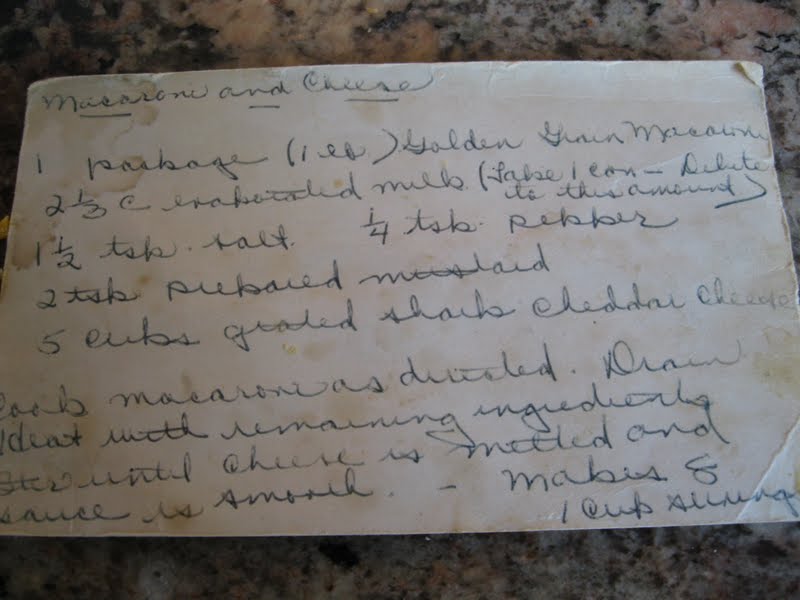 Macaroni and Cheese
1 package (1 lb) Golden Grain Macaroni
2 1/3 C evaporated milk (Take 1 can - Dilute
to this amount)
1 1/2 tsp. salt. 1/4 tsp. pepper
2 tsp prepared mustard
5 cups grated sharp cheddar cheese
Cook macaroni as directed. Drain
Heat with remaining ingredients
Stir until cheese is melted and
sauce is smooth. - Makes 8
1 cup servings